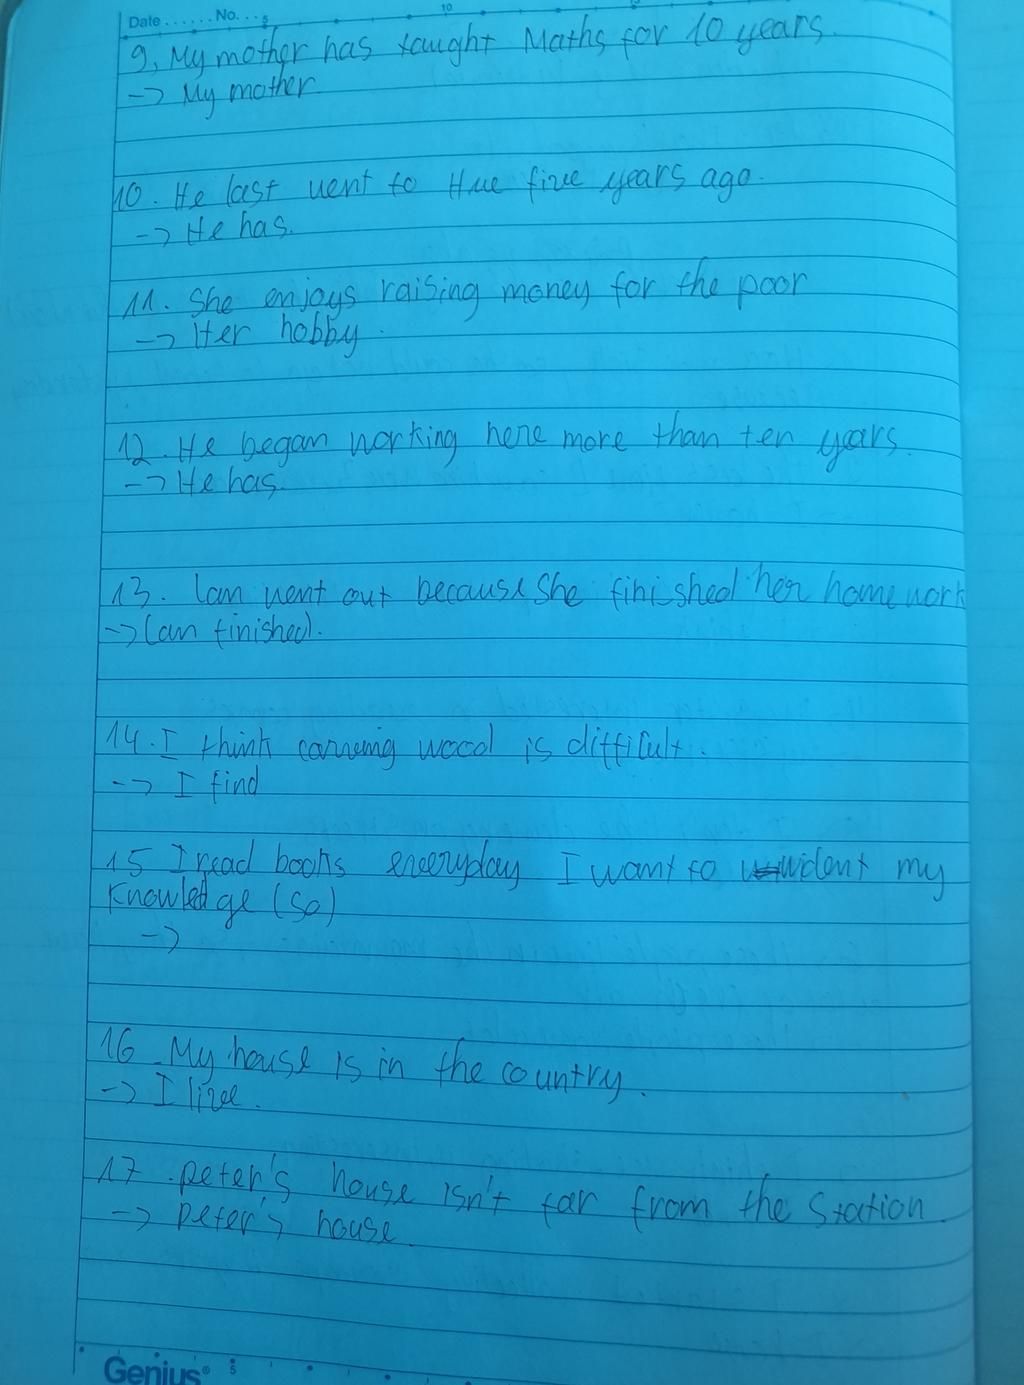 Date ...... No. ...
9, My mother has taught Maths for 10 years.
-> My mother.
10. He last went to Hue five years ago.
-> He has.
11. She enjoys raising money for the poor
-> Her hobby.
12. He began working here more than ten years.
-> He has.
13. Lan went out because she finished her homework
-> Lan finished.
14. I think carving wood is difficult.
-> I find
15 I read books everyday I want to wident my
knowledge (so)
->
16 My house is in the country.
-> I live.
17. peter's house isn't far from the station.
-> peter's house.
Genius